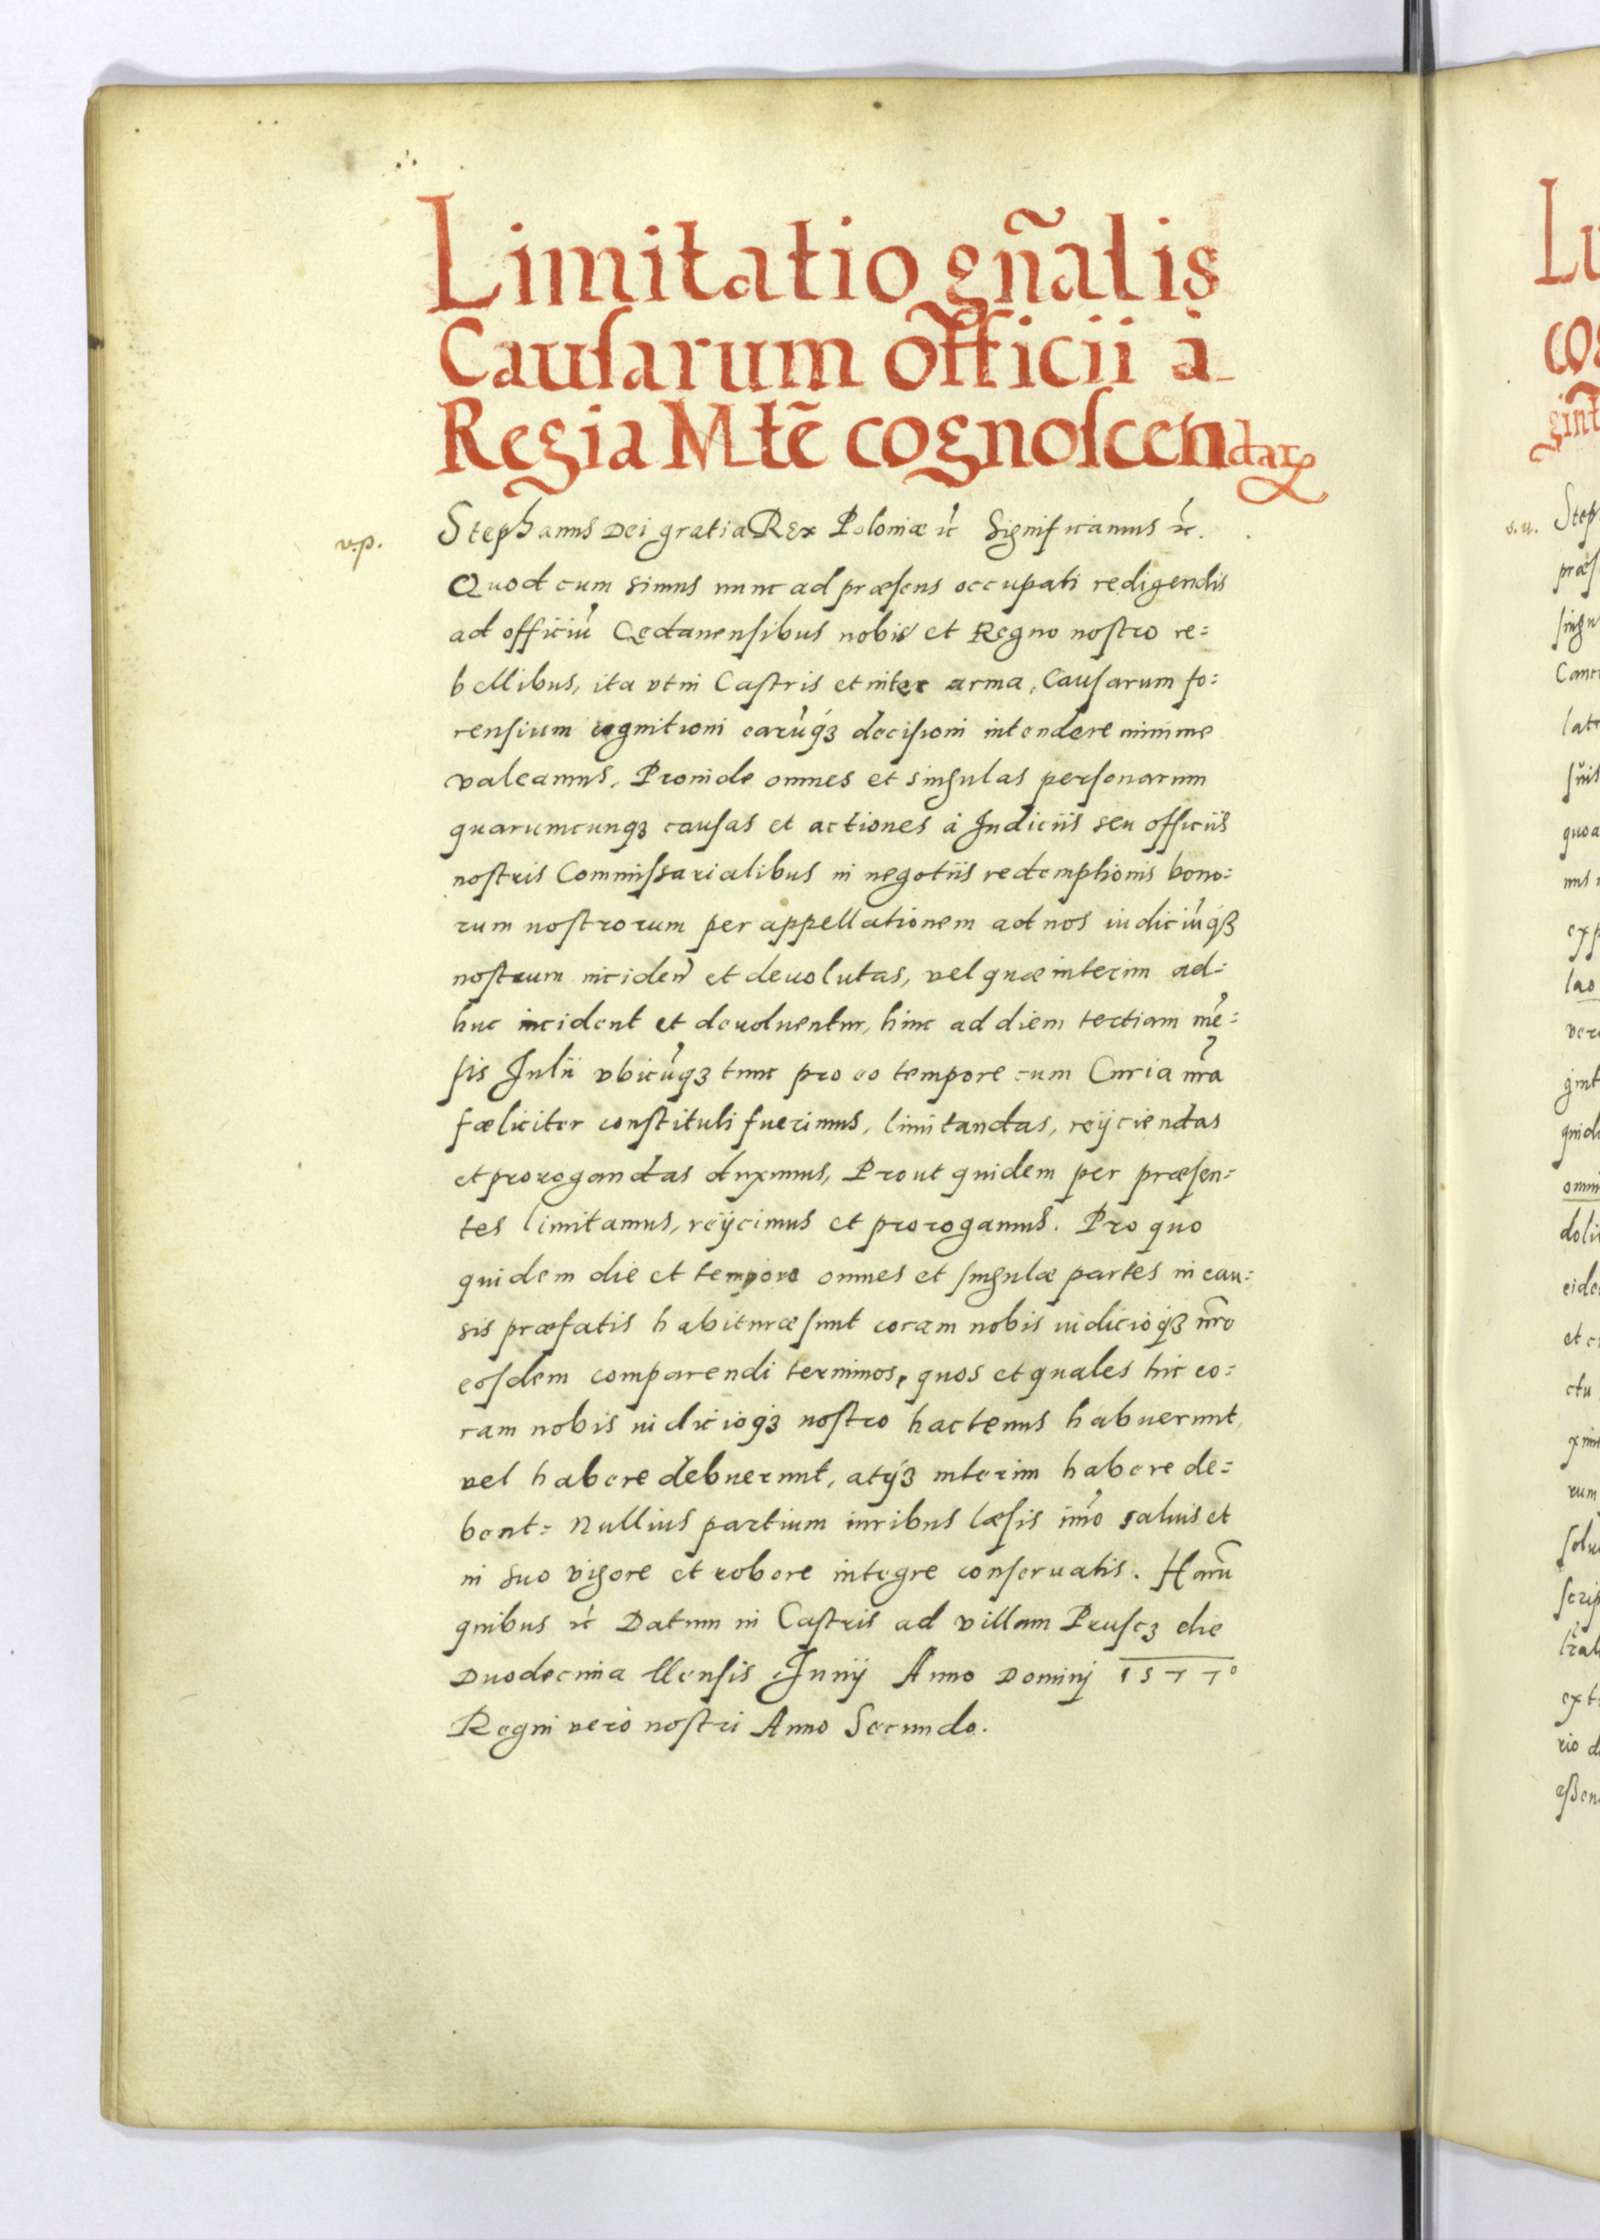 Limitatio gn̄alis
Causarum officii à
Regia Mtē cognoscendarꝝ
v.p.
Stephanus Dei gratia Rex Poloniæ ꝛc̓ Significamus ꝛc̓.
Quod cum simus nunc ad præsens occupati redigendis
ad officiū Gedanensibus nobis et Regno nostro re=
bellibus, ita vt in Castris et inter arma, Causarum fo:
rensium cognitioni earūq́ꝫ decisioni intendere minime
valeamus. Proinde omnes et singulas personarum
quarumcunqꝫ causas et actiones à Judiciis seu officiis
nostris Commissarialibus in negotiis redemptionis bono:
rum nostrorum per appellationem ad nos iudiciūq́ꝫ
nostrum inciden̄ et deuolutas, vel quæ interim ad:
huc incident et deuoluentur, hinc ad diem tertiam mē:
sis Julii vbicūqꝫ tunc pro eo tempore cum Curia nr̄a
fæliciter constituti fuerimus, limitandas, reijciendas
et prorogandas duximus, Prout quidem per præsen:
tes limitamus, reijcimus et prorogamus. Pro quo
quidem die et tempore omnes et singulæ partes in cau:
sis præfatis habituræ sunt coram nobis iudicioq́ꝫ nr̄o
eosdem comparendi terminos, quos et quales hic co:
ram nobis iudicioq́ꝫ nostro hactenus habuerunt,
vel habere debuerunt, atq́ꝫ interim habere de:
bent: Nullius partium iuribus læsis im̄o saluis et
in suo vigore et robore integre conseruatis. Harū
quibus ꝛc̓ Datum in Castris ad villam Pruscz die
Duodecima Mensis Junij Anno Dominj 1577º
Regni vero nostri Anno Secundo.